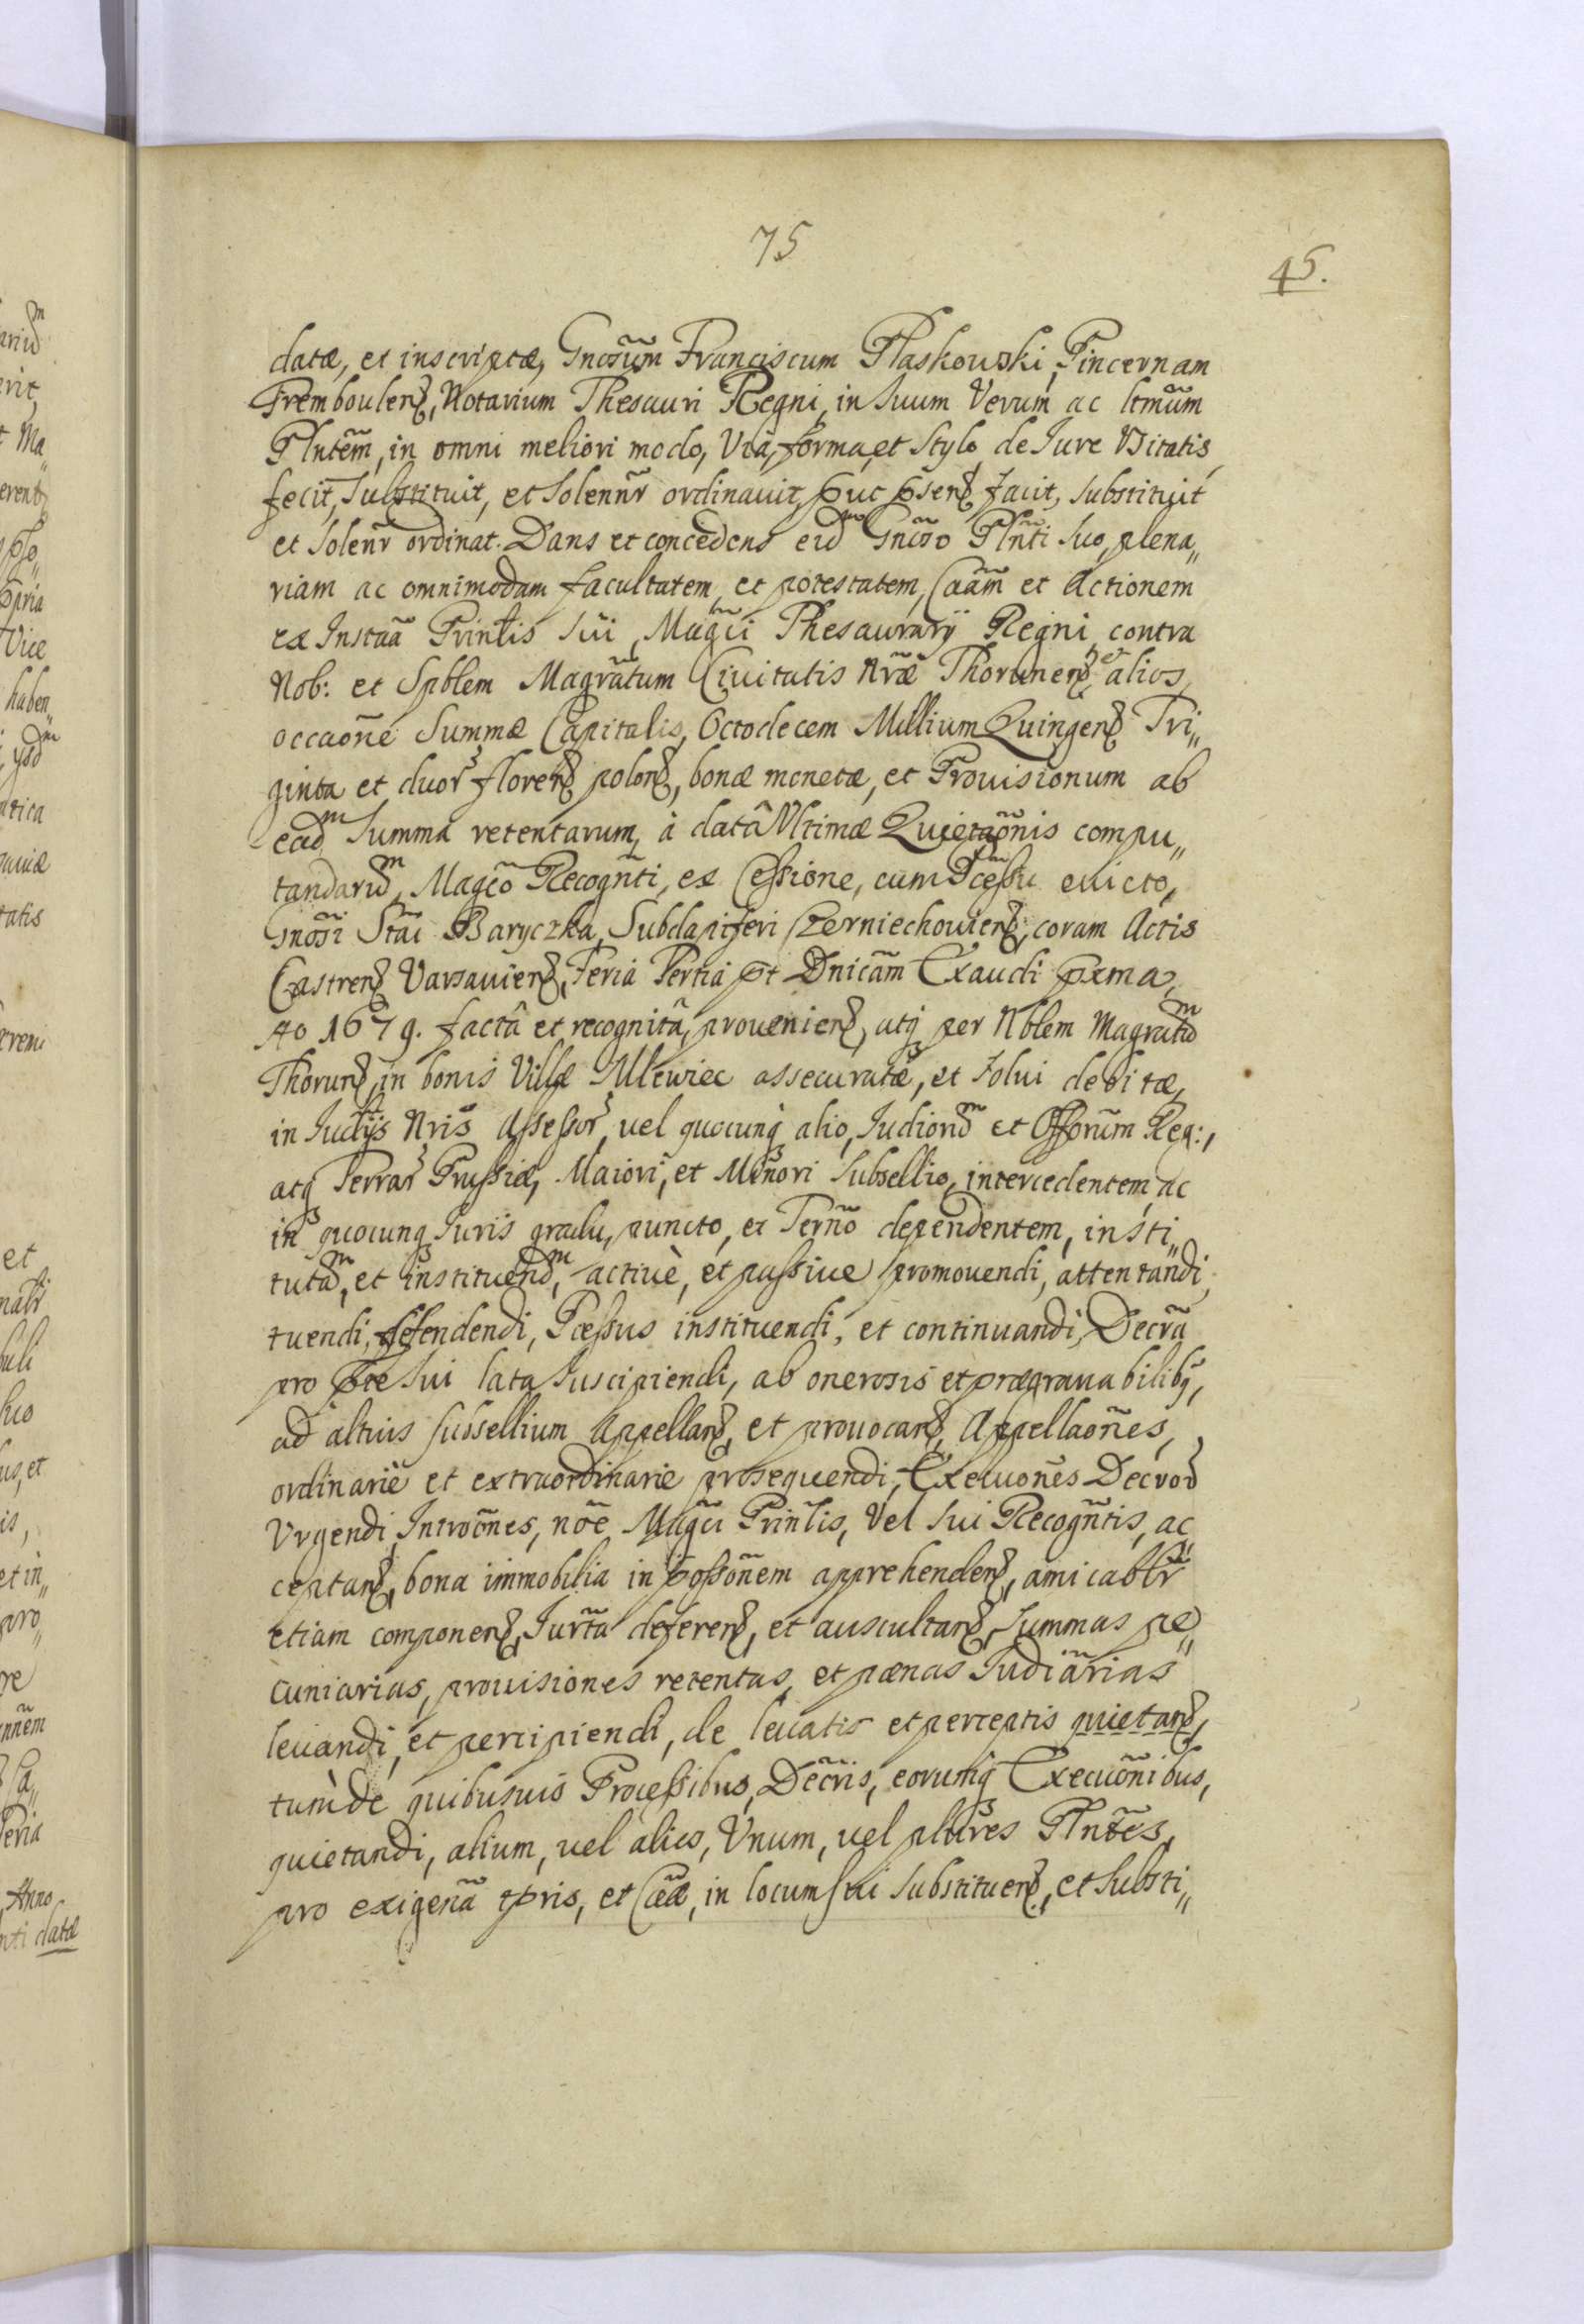 75
45.
datæ, et inscriptæ, Gnosũm Franciscum Płaskowski, Pincernam
Trembouleñ, Notarium Thesauri Regni, in Suum Verum ac ltmũm
Plntẽm, in omni meliori modo, Via, forma, et Stylo de Jure Vsitatis,
fecit, Substituit, et Solennr̃ ordinauit, put pseñ facit, substituit
et Solenr̃ ordinat. Dans et concedens eidm Gnõso Plñti Suo, plena„
riam ac omnimodam facultatem, et potestatem, Caãm et Actionem
ex Instaã Prinl̃is Sui, Magci Thesaurarij Regni contra
Nob: et Spblem Magrãtum Ciuitatis Nræ̃ Thoruneñ, et alios,
occaõne Summæ Capitalis, Octodecem Millium Quingeñ Tri„
ginta et duor floreñ poloñ, bonæ monetæ, et Prouisionum ab
eadm Summa retentarum, à datâ Vltimæ Quietaõnis compu„
tandarum, Magcõ Recogñti, ex Cessione, cum Pcessu euicto,
Gnõsi Stãi Baryczka, Subdapiferi Czerniechouieñ, coram Actis
Castreñ Varsauieñ, Feria Tertia pt Dnicãm Exaudi pxma,
Ao 1679. factâ et recognitâ, prouenieñ, atq per Nblem Magratum
Thoruñ, in bonis Villæ Mlewiec assecuratæ, et Solui debitæ,
in Judijs Nris̃ Assessor, uel quocunq alio, Judiorum et Offorũm Reg:,
atq Terrar Prussiæ, Maiori, et Minori Subsellio, intercedentem, ac
in quocunq Juris gradu, puncto, et Terñō dependentem, insti„
tutam, et instituendm, actiuè, et passiue promouendi, attentandi,
tuendi, defendendi, Pcessus instituendi, et continuandi, Decrã
pro pte Sui lata Suscipiendi, ab onerosis et prægrauabilibq,
ad altius subsellium Appellañ, et prouocañ, Appellaõnes,
ordinariè et extraordinarie prosequendi, Execuõnes Decror
Vrgendi, Introõnes, nõe Magci Prinl̃is, Vel Sui Recogñtis, ac
ceptañ, bona immobilia in possõnem apprehendeñ, amicablr̃
etiam componeñ, Jurt̃a defereñ, et auscultañ, Summas pe„
cuniarias, prouisiones retentas, et pœnas Judiãrias
leuandi, et percipiendi, de leuatis et perceptis quietañ,
tum de quibusuis Processibus, Decr̃is, eorumq Execuõnibus,
quietandi, alium, uel alios, Vnum, uel plures Plnt̃es,
pro exigenã tpris, et Cãæ, in locum sui Substitueñ, et Substi„